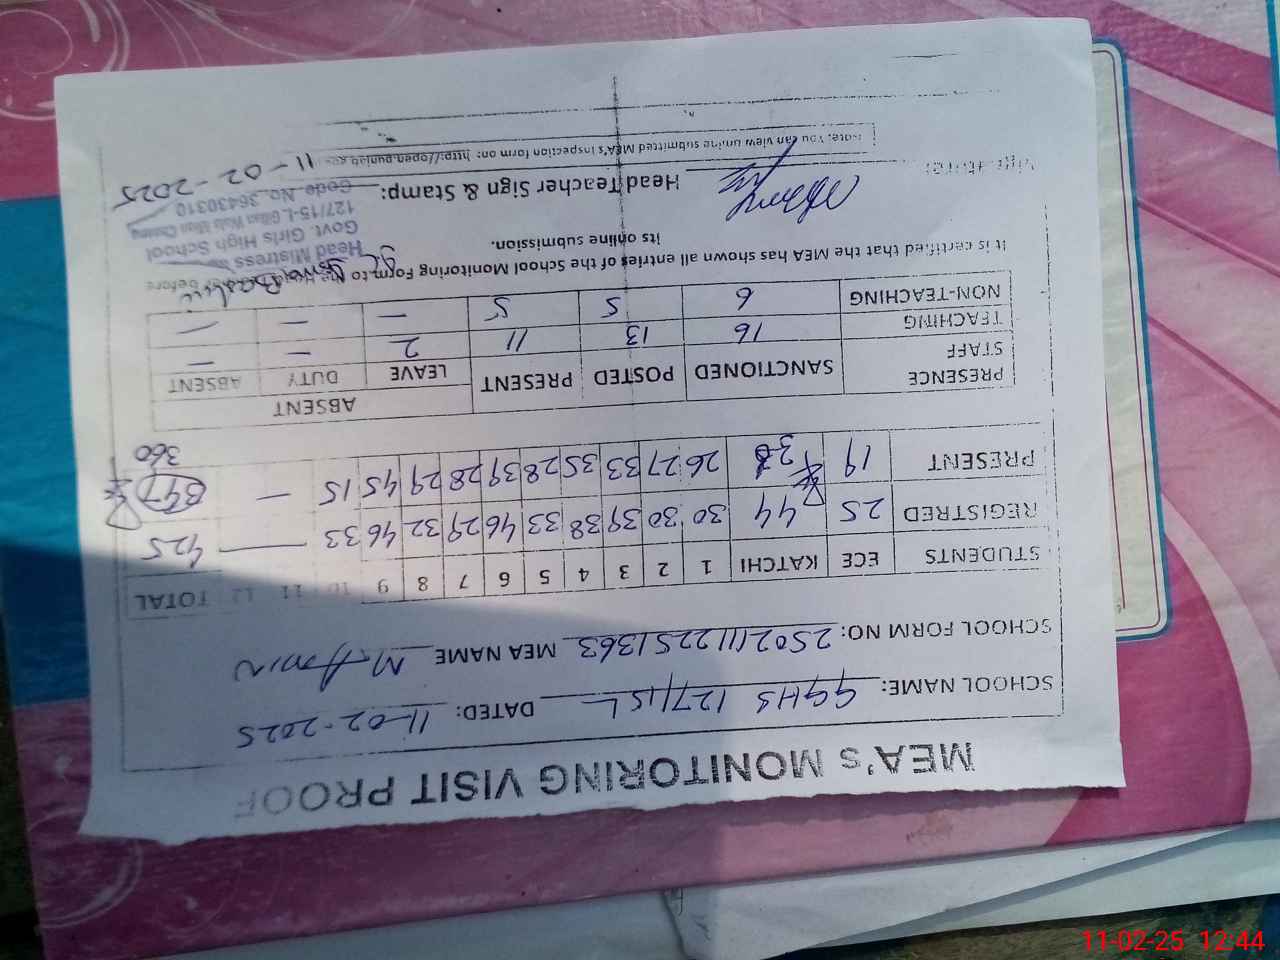 MEA's MONITORING VISIT PROOF
SCHOOL NAME: GGHS 127/15L DATED: 11-02-2025
SCHOOL FORM NO: 25021112251363 MEA NAME M. Amin
STUDENTS ECE KATCHI 1 2 3 4 5 6 7 8 9 10 11 12 TOTAL
REGISTRED 25 44 30 30 39 38 33 46 29 32 46 33 — 425
PRESENT 19 26 27 33 35 28 39 28 29 45 15 — 347
360
PRESENCE STAFF SANCTIONED POSTED PRESENT ABSENT
LEAVE DUTY ABSENT
TEACHING 16 13 11 2 — —
NON-TEACHING 6 5 5 — — —
It is certified that the MEA has shown all entries of the School Monitoring Form to before
its online submission.
Head Mistress
Govt. Girls High School
127/15-L Mian Channu
Code. No. 36430310
Head Teacher Sign & Stamp:
11-02-2025
Note: You can view online submitted MEA's inspection form on: http://open.punjab
11-02-25 12:44